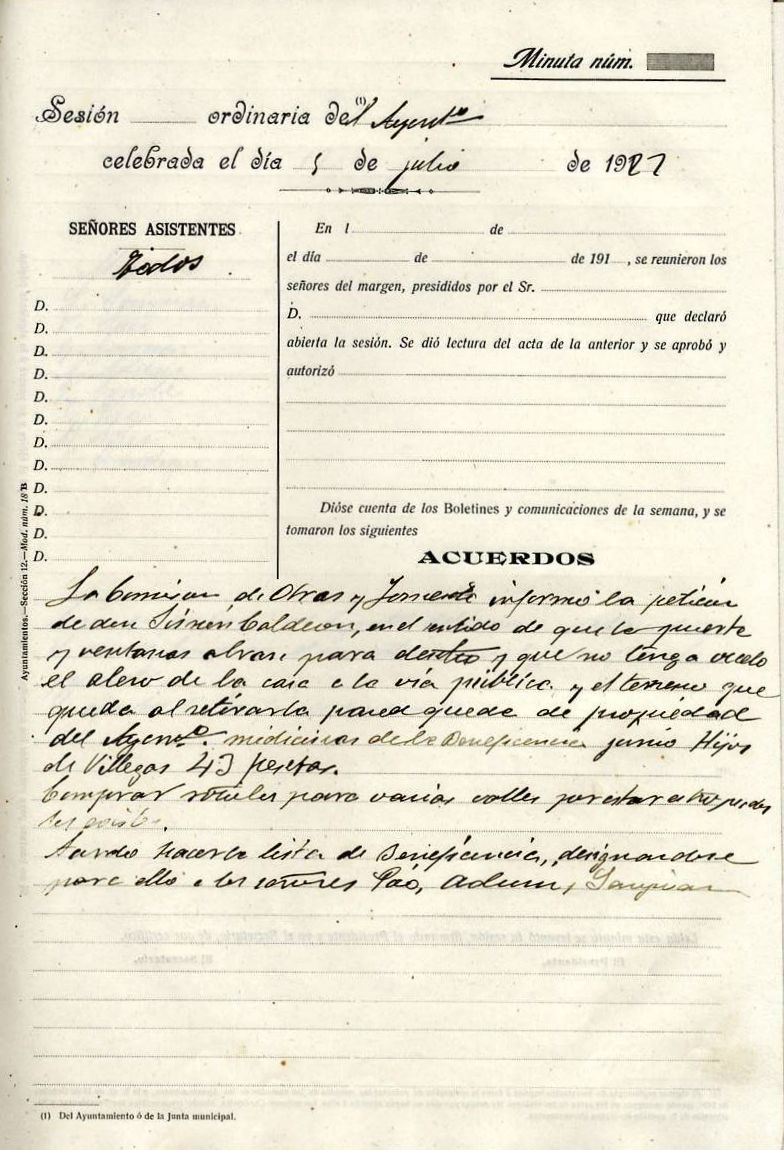 Minuta núm.
Sesión ordinaria del (1) Ayunt.º
celebrada el día 5 de julio de 1927
SEÑORES ASISTENTES
Todos
D.
D.
D.
D.
D.
D.
D.
D.
D.
D.
D.
D.
En l de
el día de de 191 , se reunieron los
señores del margen, presididos por el Sr.
D. que declaró
abierta la sesión. Se dió lectura del acta de la anterior y se aprobó y
autorizó
Dióse cuenta de los Boletines y comunicaciones de la semana, y se
tomaron los siguientes
ACUERDOS
La Comision de Obras y Fomento informó la petición
de don Calderon, en el sentido de que la puerta
y ventanas abran para dentro y que no tenga vuelo
el alero de la casa a la vía pública y el terreno que
queda al retirar la pared quede de propiedad
del Ayunt.º. medicinas de la Beneficencia junio Hijos
de Villegas 43 pesetas.
Comprar rótulos para varias calles por estar
Acordó hacer la lista de Beneficencia, designandose
para ello a los señores
Ayuntamientos.—Sección 12.—Mod. núm. 18 B
(1) Del Ayuntamiento ó de la Junta municipal.